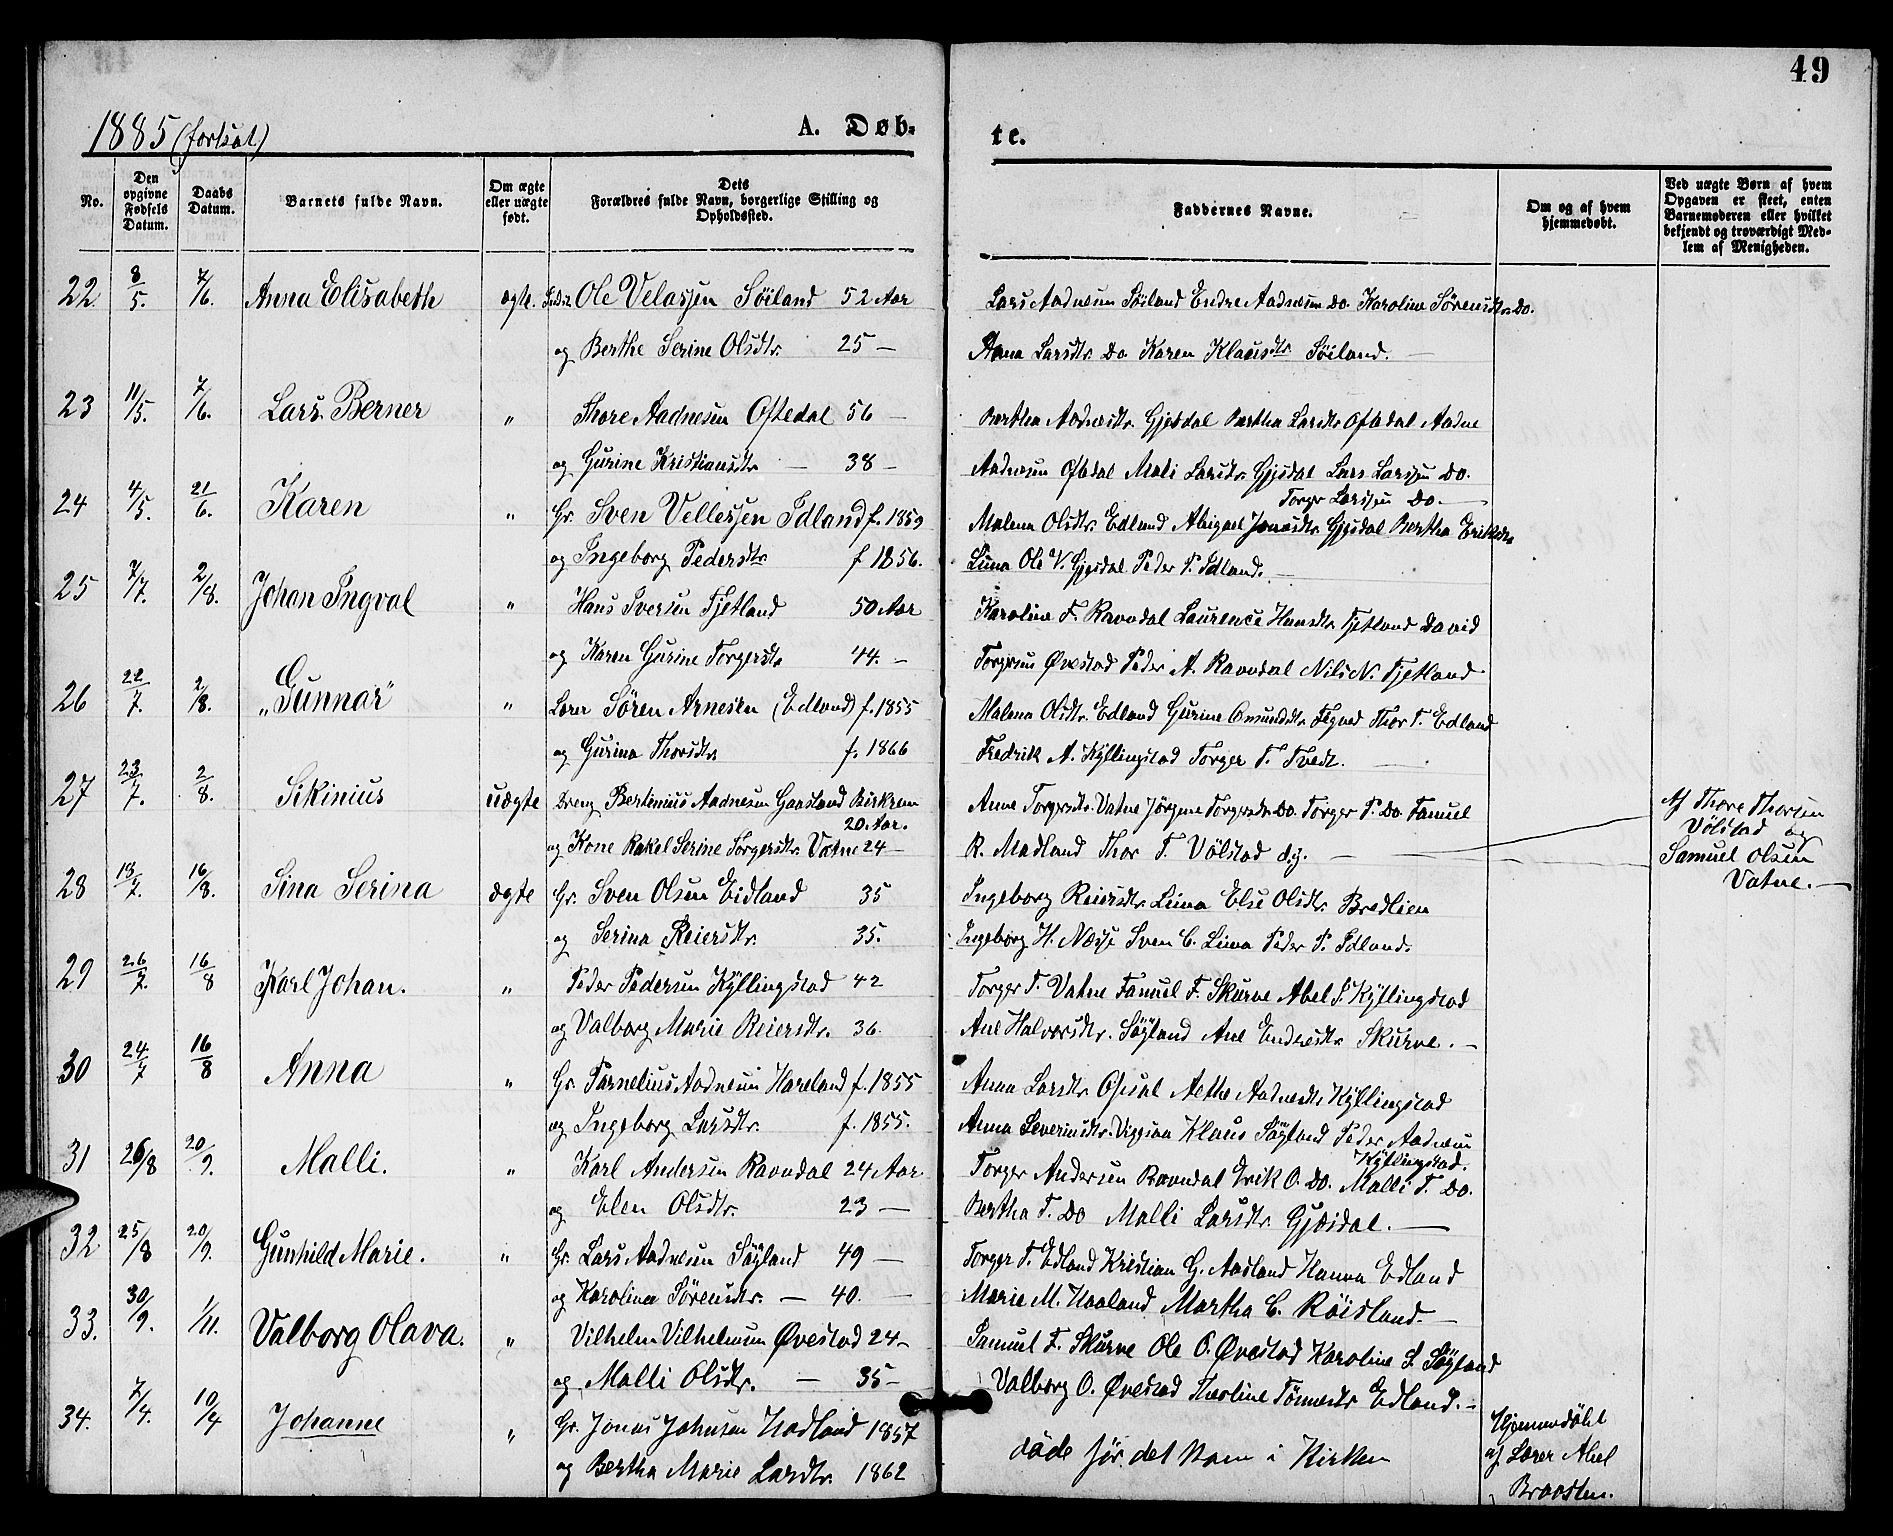 49
1885 (fortsat)
A. Døb-
te.
No.
Den opgivne Fødsels Datum.
Daabs Datum.
Barnets fulde Navn.
Om ægte eller uægte født.
Dets Forældres fulde Navn, borgerlige Stilling og Opholdssted.
Faddernes Navne.
Om og af hvem hjemmedøbt.
Ved uægte Børn af hvem Opgaven er skeet, enten Barnemoderen eller hvilket bekjendt og troværdigt Medlem af Menigheden.
22 8/5. 7/6. Anna Elisabeth ægte. Ole Velassen Söiland 52 Aar Lars Aadnesen Söiland Endre Aadnesen Do. Karoline Sörensdtr. Do.
og Berthe Serine Olsdtr. 25 — Anna Larsdtr. Do Karen Klausdtr Söiland. —
23 11/5. 7/6. Lars Berner " Thore Aadnesen Oftedal 56 — Bertha Aadnesdtr. Gjesdal Bertha Larsdtr Oftedal Aadne
og Gurine Kristiansdtr — 38 — Aadnesen Oftedal Mali Larsdtr. Gjesdal Lars Larssen Do.
Torger Larssen Do. —
24 4/5. 21/6. Karen " Gr. Sven Vellessen Idland f. 1859 Malena Olsdtr. Edland Abigael Jonasdtr Gjesdal Bertha Eriksdtr
og Ingeborg Pedersdtr f 1856. Lima Ole V. Gjesdal Peder P. Idland. —
25 7/7. 2/8. Johan Ingval " Hans Iversen Fjetland 50 Aar Karoline F. Ravndal Laurence Hansdtr. Fjetland David
og Karen Gurine Torgersdtr 44. — Torgersen Øvestad Peder A. Ravndal Nils N. Fjetland
26 22/7. 2/8. "Gunnar" " Lærer Sören Arnesen (Edland) f. 1855 Malena Olsdtr. Edland Gurine Omundsdtr. Thor T. Edland
og Gurina Thorsdtr. f. 1866 Fredrik A. Kyllingstad Torger T. Tvedt. —
27 23/7. 2/8. Sikinius uægte Dreng Bertinius Aadnesen Gaasland Birkrem Anne Torgersdtr. Vatne Jörgine Torgersdtr. Do. Torger P. Do. Samuel
20. Aar.
og Kone Rakel Serine Torgersdtr. Vatne 24 — R. Madland Thor T. Völstad
Af Thore Thorsen
Völstad og
Samuel Olsen
Vatne. —
28 18/7. 16/8. Sina Serina ægte Gr. Sven Olsen Eidland 35 Ingeborg Reiersdtr. Lima Else Olsdtr. Bredlien
og Serina Reiersdtr. 35. Ingeborg H. Næsse Sven C. Lima Peder P. Idland.
29 26/7. 16/8 Karl Johan. " Peder Pedersen Kyllingstad 42 Torger T. Vatne Samuel F. Skurve Abel S. Kyllingstad
og Valborg Marie Reiersdtr. 36. Ane Halvorsdtr. Söyland Ane Endresdtr Skurve. —
30 24/7 16/8 Anna " Gr. Tarnelius Aadnesen Hareland f. 1855 Anna Larsdtr. Opsal Aethe Aadnesdtr Kyllingstad
og Ingeborg Larsdtr. f. 1855. Anna Severinsdtr. Vigesaa Klaus Söyland Peder Aadnesen
Kyllingstad.
31 26/8 20/9. Malli. " Karl Andersen Ravndal 24 Aar Torger Andersen Ravndal Erik O. Do. Malli T. Do.
og Elen Olsdtr. 23 — Bertha T. Do Malli Larsdtr. Gjæsdal. —
32 25/8 20/9. Gunhild Marie. " Gr. Lars Aadnesen Söyland 49 — Torger T. Edland Kristian G. Aasland Hanna Edland
og Karoline Sörensdtr. — 40. Marie M. Haaland Martha C. Röisland. —
33. 30/9. 1/11. Valborg Olava. " Vilhelm Vilhelmsen Øvestad 24 — Samuel F. Skurve Ole O. Øvestad Karoline S. Söyland
og Malli Olsdtr. — 35 — Valborg O. Øvestad Theoline Tönnesdtr Edland. —
34. 7/4. 10/4 Johanne " Gr. Jonas Johnsen Hadland 1857 döde för det kom i Kirken
og Bertha Marie Larsdtr. 1862
Hjemmedöbt
af Lærer Abel
Braasten.